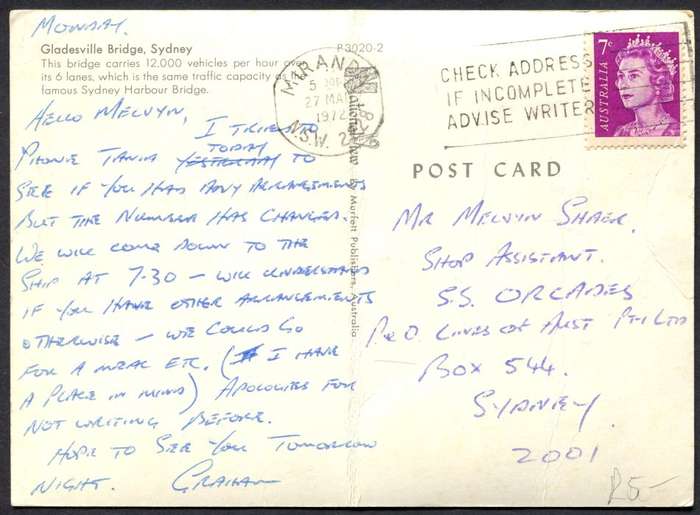 MONDAY.
Gladesville Bridge, Sydney
P3020-2
This bridge carries 12.000 vehicles per hour over
its 6 lanes, which is the same traffic capacity as
famous Sydney Harbour Bridge.
HELLO MELVYN,
I TRIED TO
PHONE TANIA YESTERDAY TODAY TO
SEE IF YOU HAD ANY ARRANGEMENTS
BUT THE NUMBER HAS CHANGED.
WE WILL COME DOWN TO THE
SHIP AT 7-30 – WILL UNDERSTAND
IF YOU HAVE OTHER ARRANGEMENTS
OTHERWISE – WE COULD GO
FOR A MEAL ETC. (I HAVE
A PLACE IN MIND) APOLOGIES FOR
NOT WRITING BEFORE.
HOPE TO SEE YOU TOMORROW
NIGHT. GRAHAM
MIRANDA
27 MAR
1972
N.S.W. 2228
CHECK ADDRESS
IF INCOMPLETE
ADVISE WRITER
7c
AUSTRALIA
National View
by Murfett Publishers, Australia
POST CARD
MR MELVYN SHAER.
SHOP ASSISTANT.
S.S. ORCADES
P&O LINES OF AUST PTY LTD
BOX 544.
SYDNEY.
2001
R5-